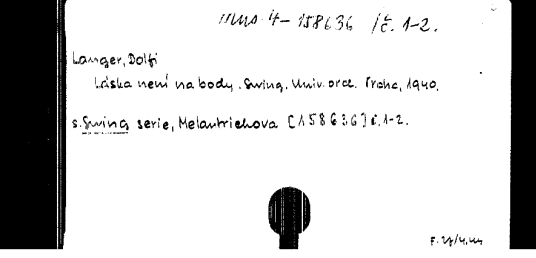 Mus. 4-158636 /č. 1-2.
Langer, Dolfi
Láska není na body. Swing. Univ. orch. Praha, 1940.
s. Swing serie, Melantrichova [158636] č. 1-2.